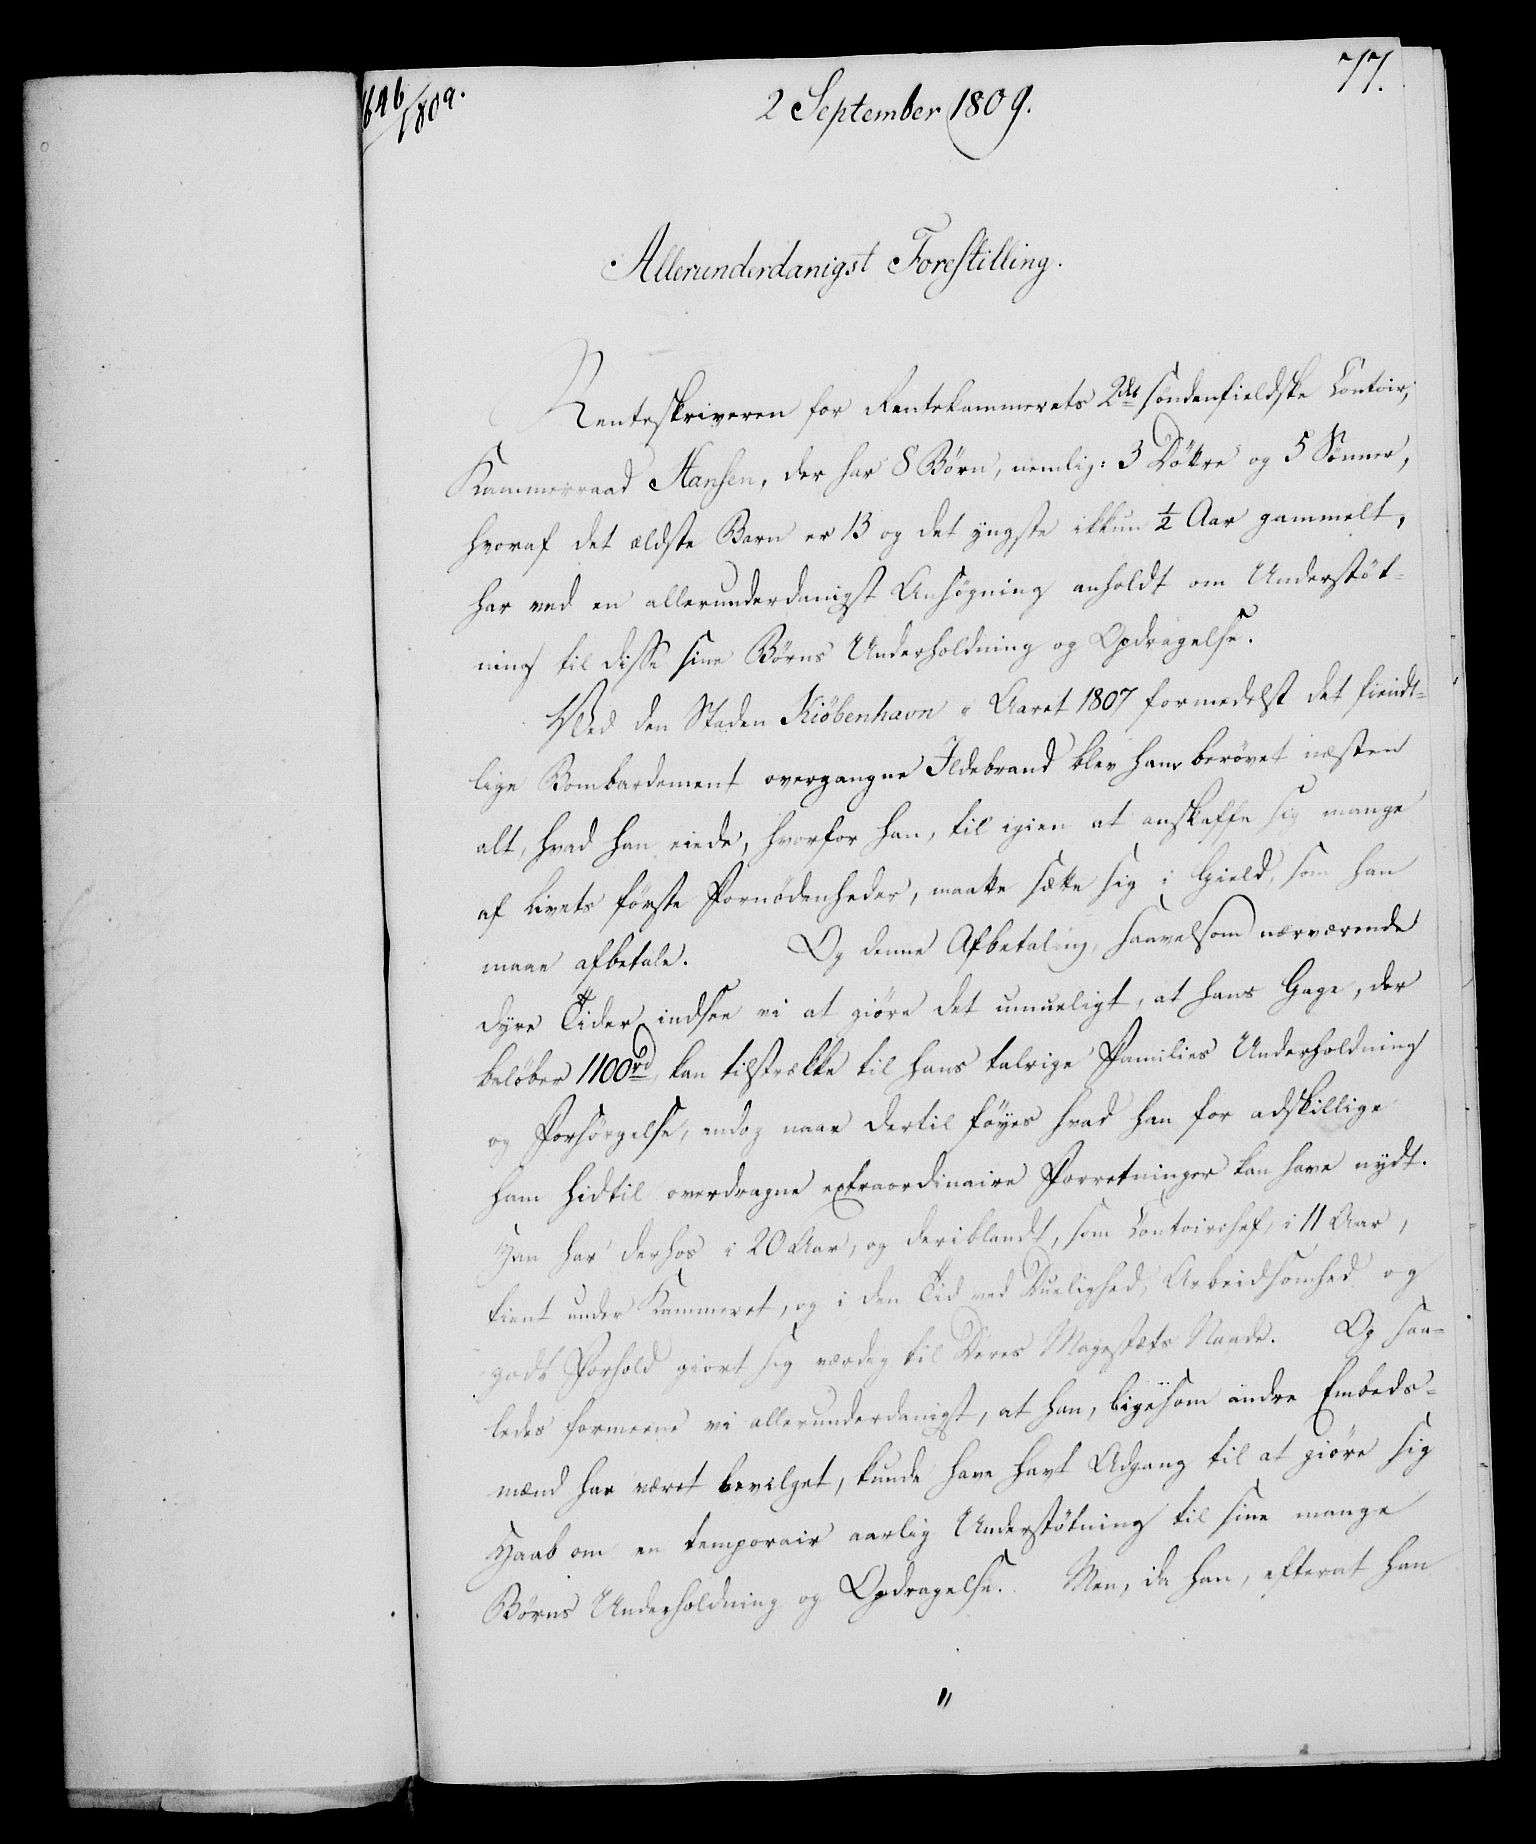 77.
1646/1809.
2 September 1809.
Allerunderdanigst Forestilling.
Renteskriveren for Rentekammerets 2det söndenfieldske Contoir,
Kammerraad Hansen, der har 8 Börn, nemlig: 3 Döttre og 5 Sönner,
hvoraf det ældste Barn er 13 og det yngste ikkun ½ Aar gammelt,
har ved en allerunderdanigst Ansögning anholdt om Understöt-
ning til disse sine Börns Underholdning og Opdragelse.
Ved den Staden Kiöbenhavn i Aaret 1807 formedelst det fiendt-
lige Bombardement overgangne Ildebrand blev ham berövet næsten
alt, hvad han eiede, hvorfor han, til igien at anskaffe sig mange
af Livets förste Fornödenheder, maatte sætte sig i Gield, som han
maae afbetale. Og denne Afbetaling, saavelsom nærværende
dyre Tider indsee vi at giöre det umueligt, at hans Gage, der
belöber 1100 rd, kan tilstrække til hans talrige Families Underholdning
og Forsörgelse, endog naar dertil föyes hvad han for adskillige
ham hidtil overdragne extraordinaire Forretninger kan have nydt.
Han har derhos i 20 Aar, og deriblandt, som Contoirchef, i 11 Aar,
tient under Kammeret, og i den Tid ved Duelighed, Arbeidsomhed og
godt Forhold giort sig værdig til Deres Majestæts Naade. Og saa-
ledes formeene vi allerunderdanigst, at han, ligesom andre Embeds-
mænd har været bevilget, kunde have havt Adgang til at giöre sig
Haab om en temporair aarlig Understötning til sine mange
Börns Underholdning og Opdragelse. Men, da han, efterat han
"